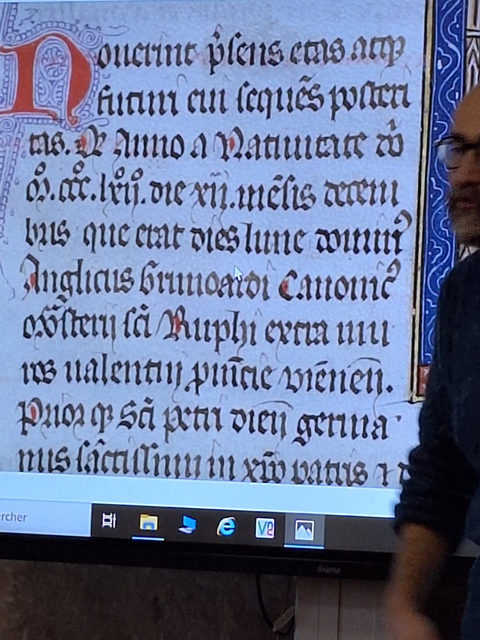 Nouerint p̄sens etas atqꝫ
futuri eui sequēs posteri
tas. Qꝫ Anno a Natiuitate dn̄i
M. ccc. lxij. die xij. mēsis decem
bris que erat dies lune domin⁹
Anglicus Grimoardi Canonic⁹
monast̄erij sc̄i Ruphi extra mu
ros ualentin̄ ꝓuincie viēnen̄.
Prior qꝫ Sc̄i petri dien̄ germa
nus sāctissimi in xp̄o patris
rcher
iiyama